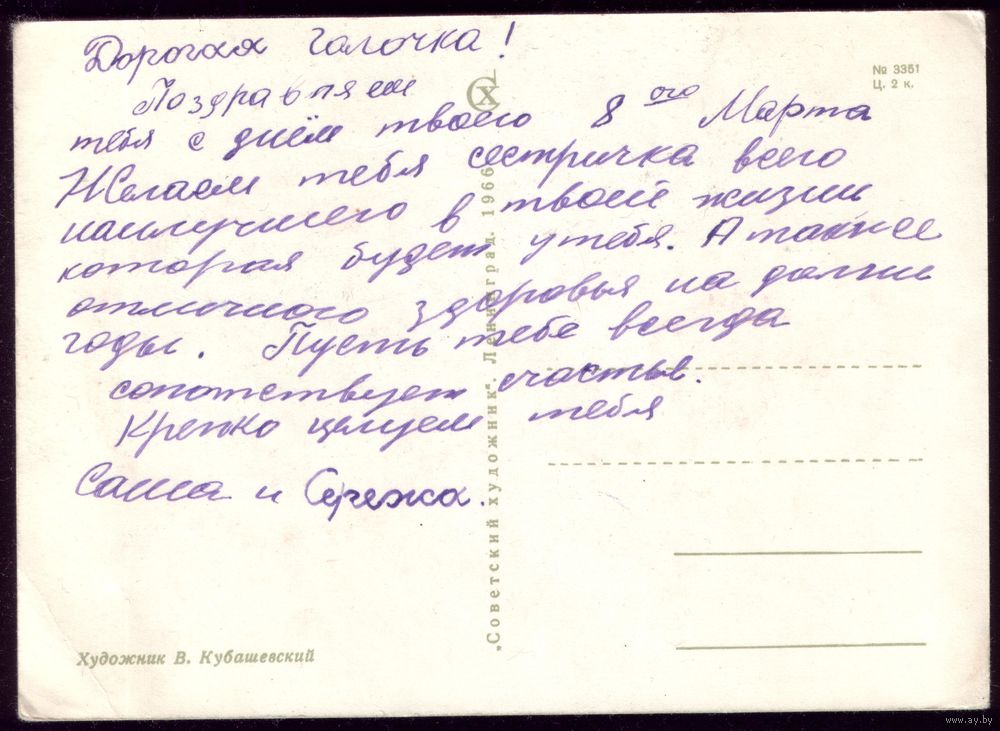 Дорогая Галочка!
Поздравляем
тебя с днём твоего 8 ого Марта
Желаем тебя сестричка всего
наилучшего в твоей жизни
которая будет у тебя. А также
отличного здоровья на долгие
годы. Пусть тебе всегда
сопотствует счастье.
Крепко целуем тебя
Саша и Сережа.
№ 3351
Ц. 2 к.
СХ
„Советский художник“ Ленинград. 1966
Художник В. Кубашевский
www.ay.by